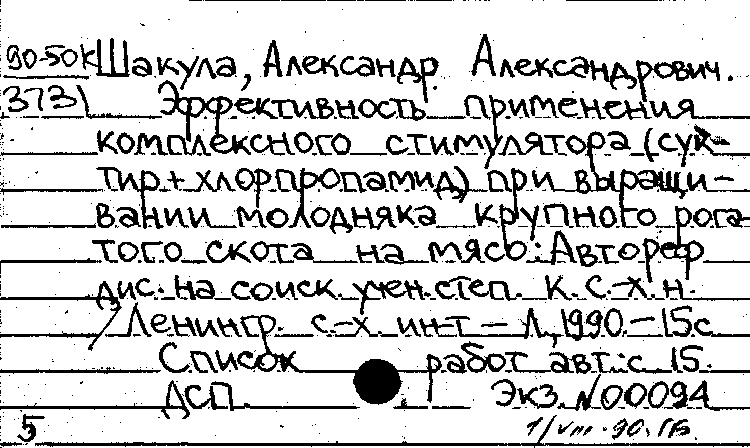 90-50К Шакула, Александр Александрович.
3731 Эффективность применения
комплексного стимулятора (сук-
тир + хлорпропамид) при выращи-
вании молодняка крупного рога-
того скота на мясо: Автореф
дис. на соиск. учен. степ. к. с.-х. н.
/ Ленингр. с.-х. ин-т - Л., 1990. - 15 с.
Список работ авт.: с 15.
ДСП. Экз. N 00094
5 1/VIII-90. ГБ.